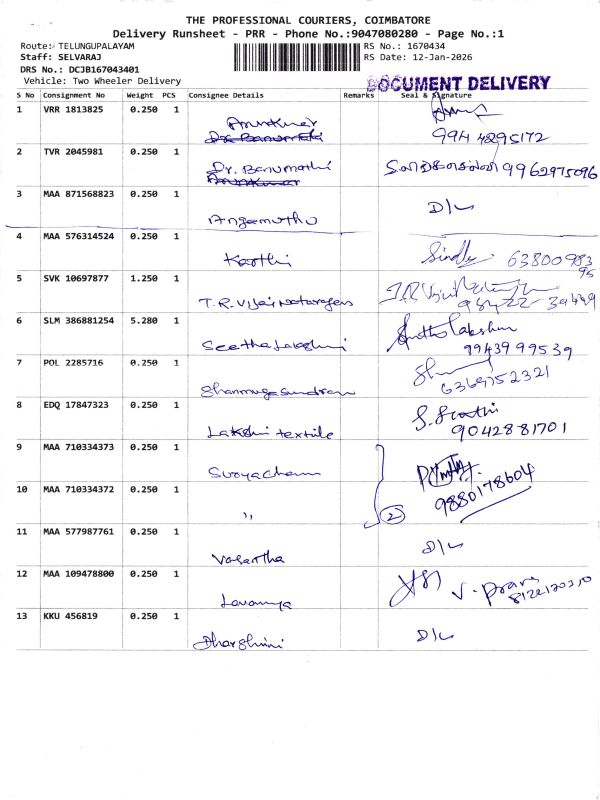 THE PROFESSIONAL COURIERS, COIMBATORE
Delivery Runsheet - PRR - Phone No.:9047080280 - Page No.:1
Route: TELUNGUPALAYAM RS No.: 1670434
Staff: SELVARAJ RS Date: 12-Jan-2026
DRS No.: DCJB167043401
Vehicle: Two Wheeler Delivery
DOCUMENT DELIVERY
S No Consignment No Weight PCS Consignee Details Remarks Seal & Signature
1 VRR 1813825 0.250 1
Arunkumar
Dr. Banumathi
99H 4895172
2 TVR 2045981 0.250 1
Dr. Banumathi 9962975096
Arunkumar
3 MAA 871568823 0.250 1
Angamuthu D/L
4 MAA 576314524 0.250 1
Karthi 63800983
95
5 SVK 10697877 1.250 1
T.R. Vijai Natarajan
6 SLM 386881254 5.280 1
Seetha Lakshmi 9943999539
7 POL 2285716 0.250 1
Shanmuga Sundram 6369752321
8 EDQ 17847323 0.250 1
Lakshi textile 9042881701
9 MAA 710334373 0.250 1
9880178604
10 MAA 710334372 0.250 1
,, 2
11 MAA 577987761 0.250 1
Vasantha D/L
12 MAA 109478800 0.250 1
Lavanya
13 KKU 456819 0.250 1
Dharshini D/L